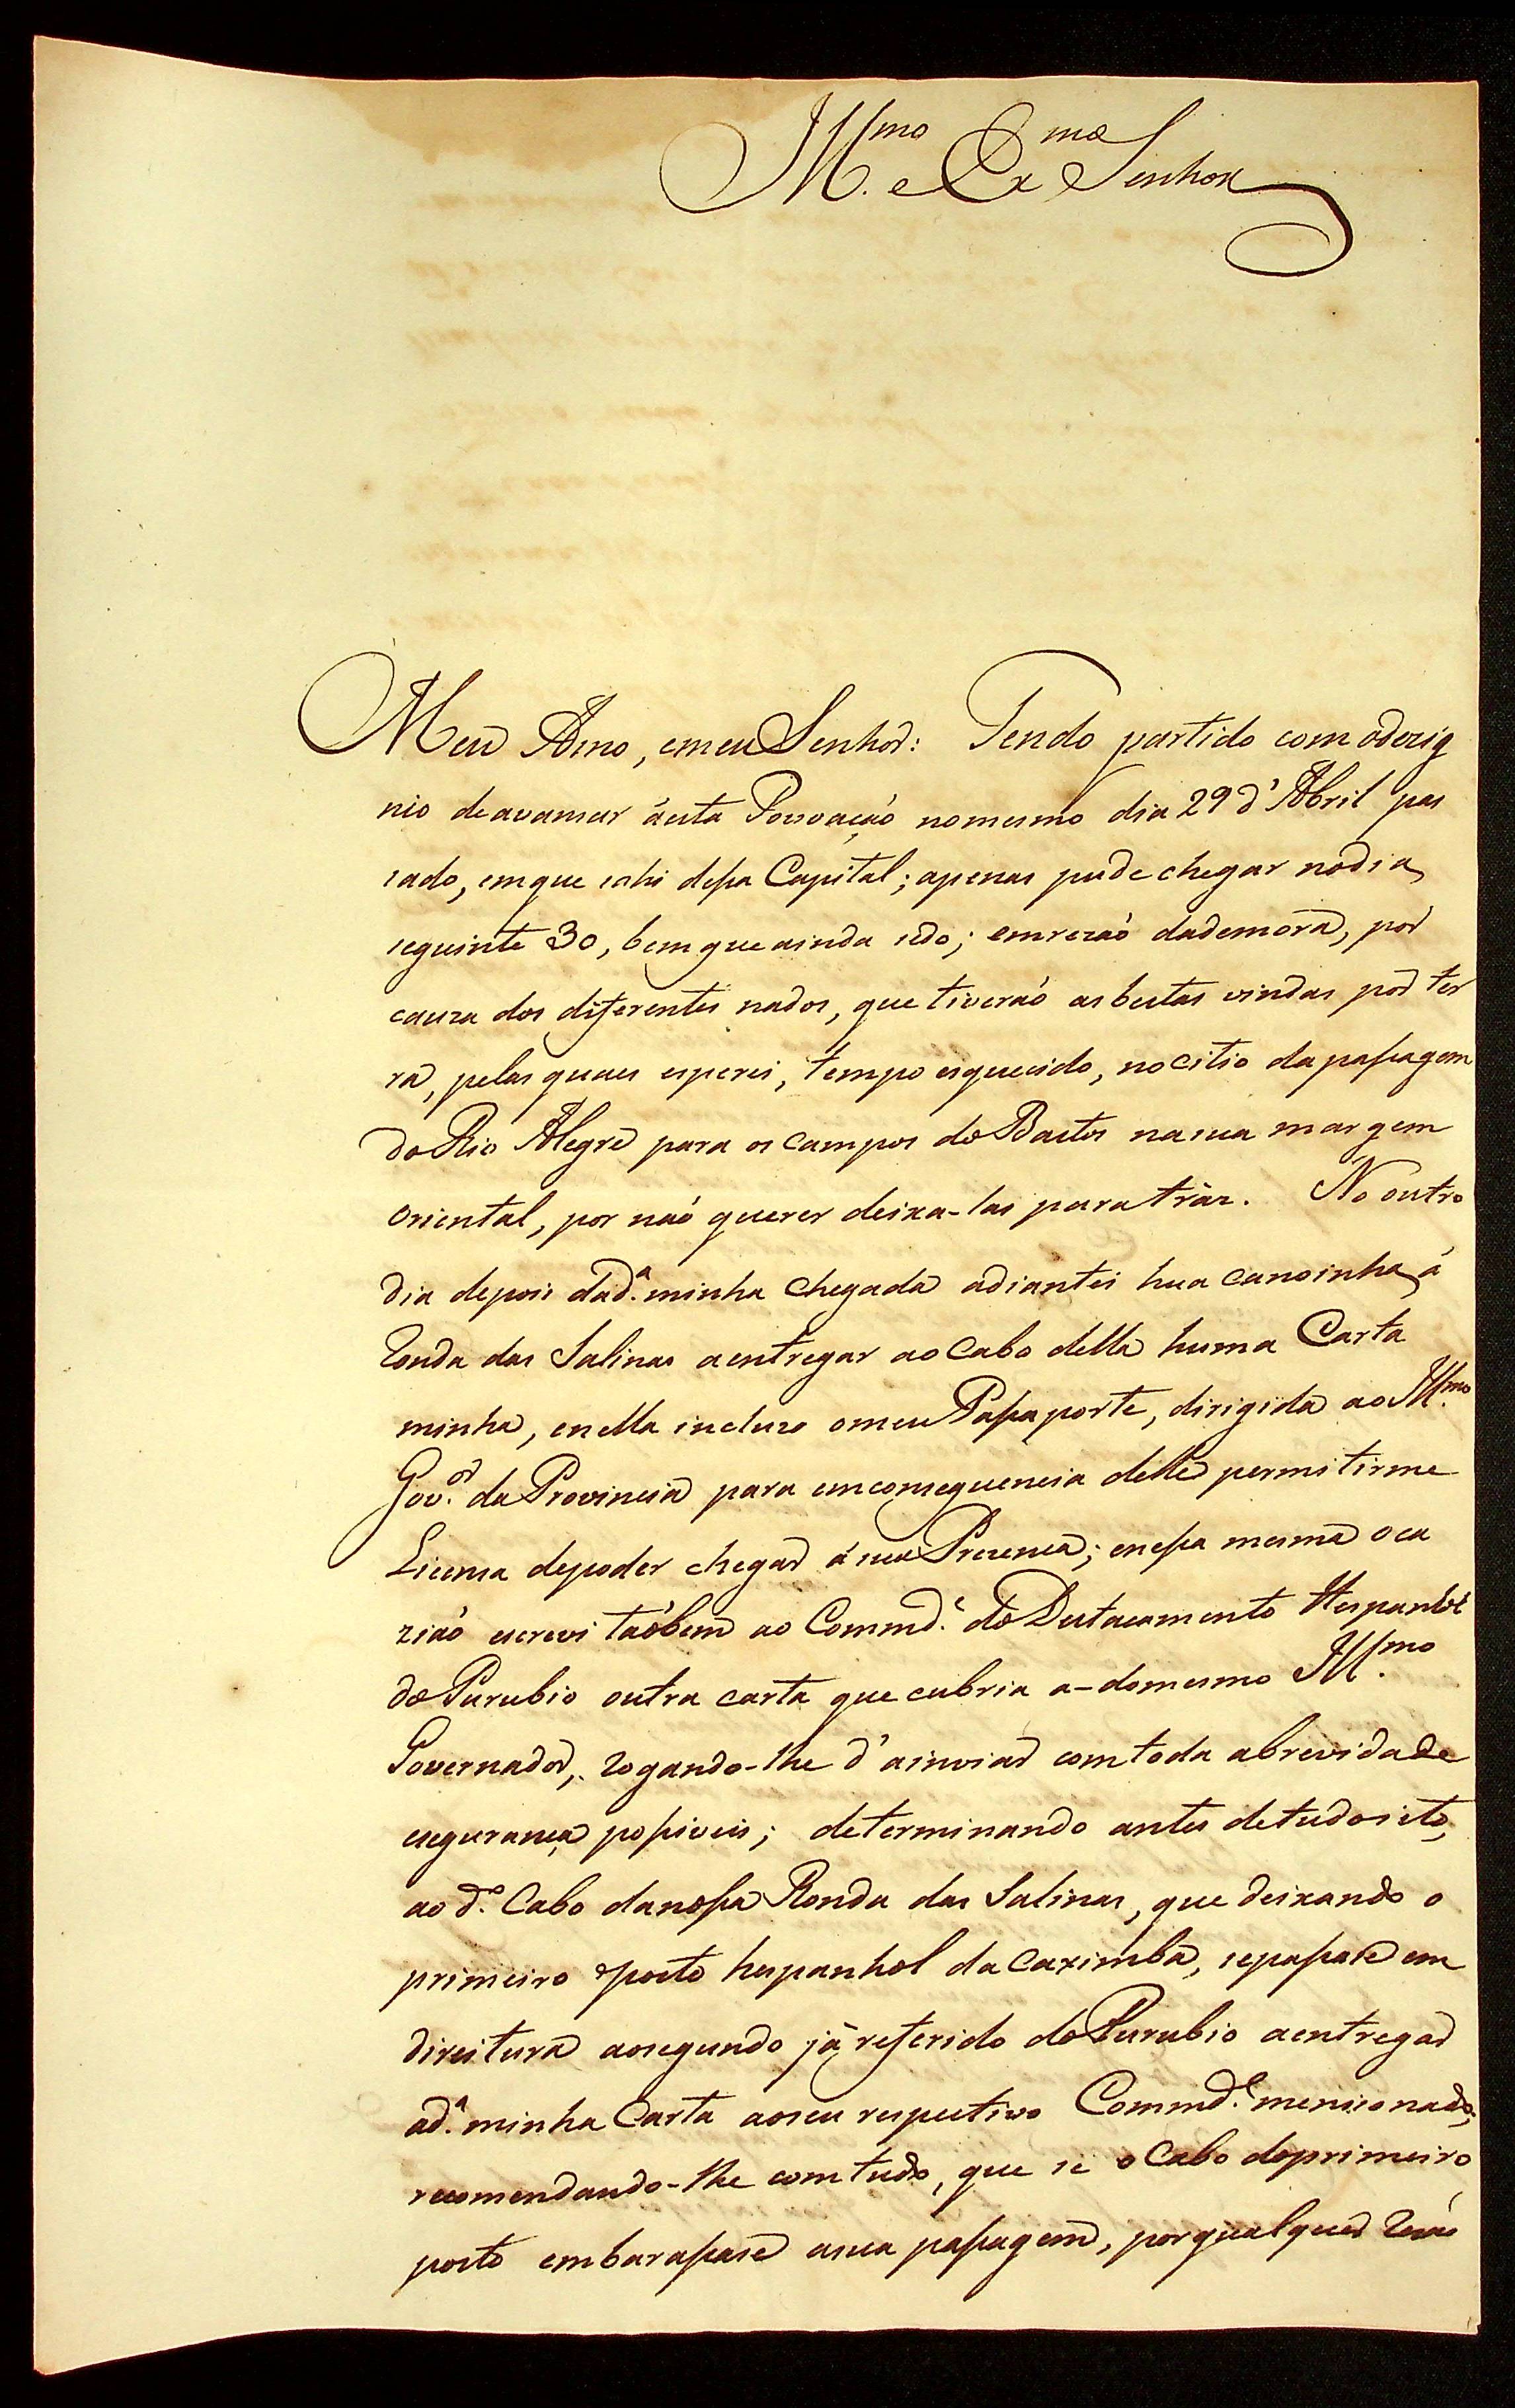 Ill.mo e Ex.mo Senhor
Meu Amo, emeu Senhor: Tendo partido com odezig
nio deavansar ásta Povoaçaó nomesmo dia 29 d'Abril pas
sado, emque sahi dessa Capital; apenas pude chegar nodia
seguinte 30, bemque ainda sedo; emrezaó dademora, por
cauza dos diferentes nados, que tiveraó asbestas vindas por ter
ra, pelas quaes esperei, tempo esquecido, nocitio da passagem
do Rio Alegre para os campos do Bastos nasua margem
Oriental, por naó querer deixa-las para tràz. No outro
dia depois dad.ª minha chegada adiantei hua canoinha, á
Ronda das Salinas aentregar ao Cabo della huma Carta
minha, enella incluzo omeu Passaporte, dirigida ao Ill.mo
Gov.or da Provincia para emconsequencia delle permitirme
Licensa depoder chegar á sua Prezença; enessa mesma oca
ziaó escrevi taóbem ao Commd.e do Destacamento Hespanhol
do Purubio outra carta que cubria a-domesmo Ill.mo
Governador, rogando-lhe d'ainviar comtoda abrevidade
eseguranca possiveis; determinando antes detudo isto,
ao d.º Cabo danossa Ronda das Salinas, que deixando o
primeiro posto hespanhol da Caximba, sepassase em
direitura aosegundo já referido do Purubio aentregar
ad.ª minha Carta aoseu respectivo Commd.e mensionado;
recomendando-lhe comtudo, que se o Cabo doprimeiro
posto embarassase asua passagem, porqualquer rezaó